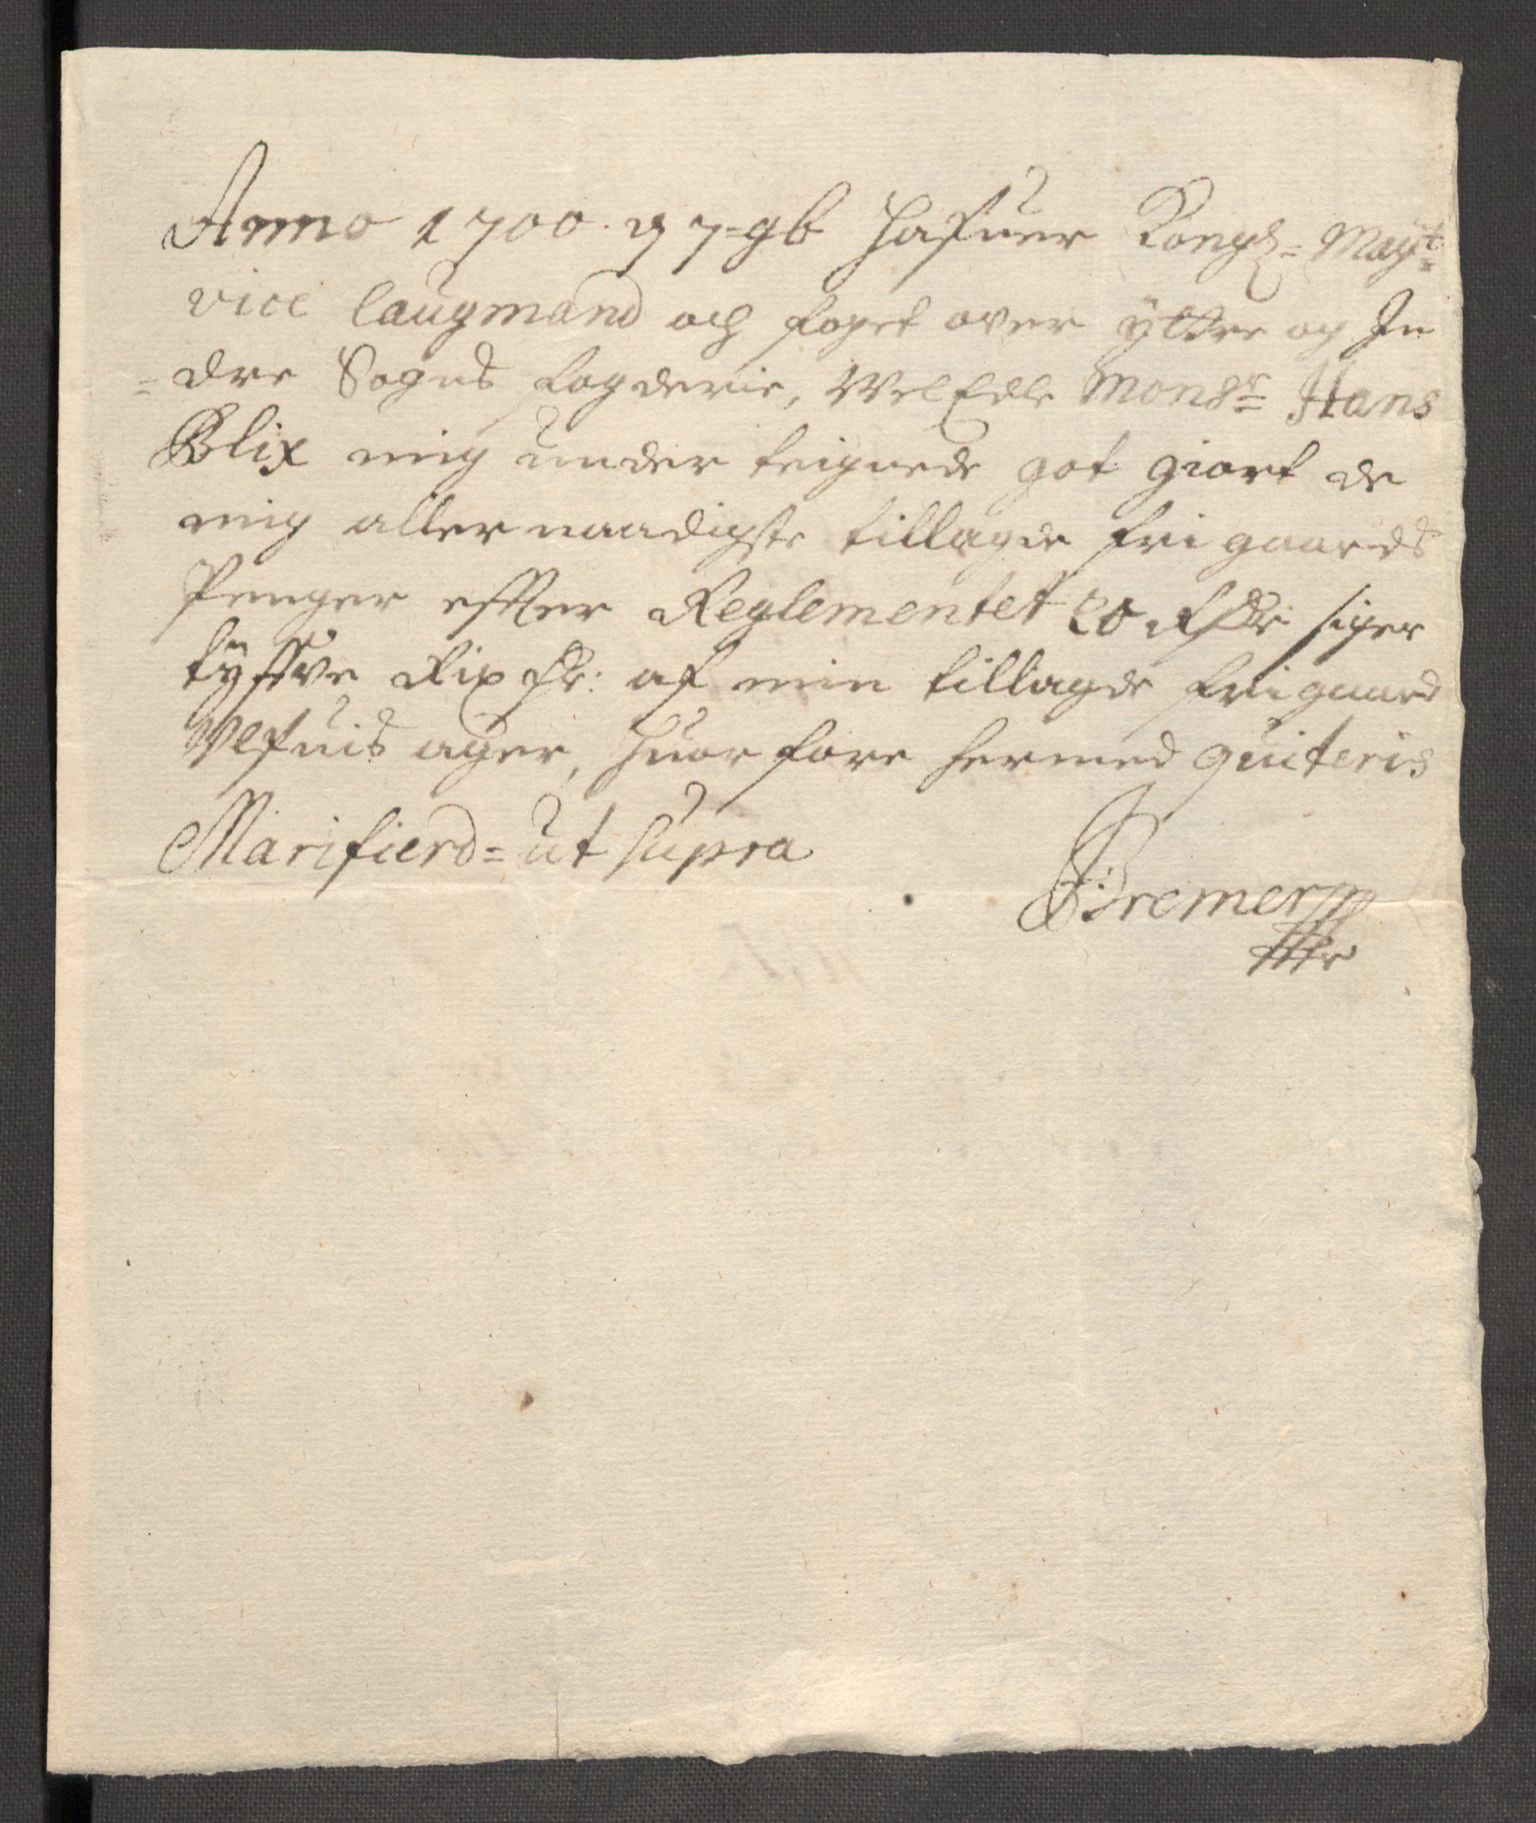 Anno 1700. d 7=9b hafuer Kongl= Mayt:
vice laugmand och foget over ÿttre og In
=dre Sogns fogderie, WelEdle Monsr= Hans
Blix mig under teignede got giort de
mig aller naadigste tillagde frigaards
Penger efter Reglementet 20 Rdr siger
tÿffve Rix dr: af min tillagde frigaard
ager, huor fore hermed quiteris
Marifierd= ut supra
Bremer